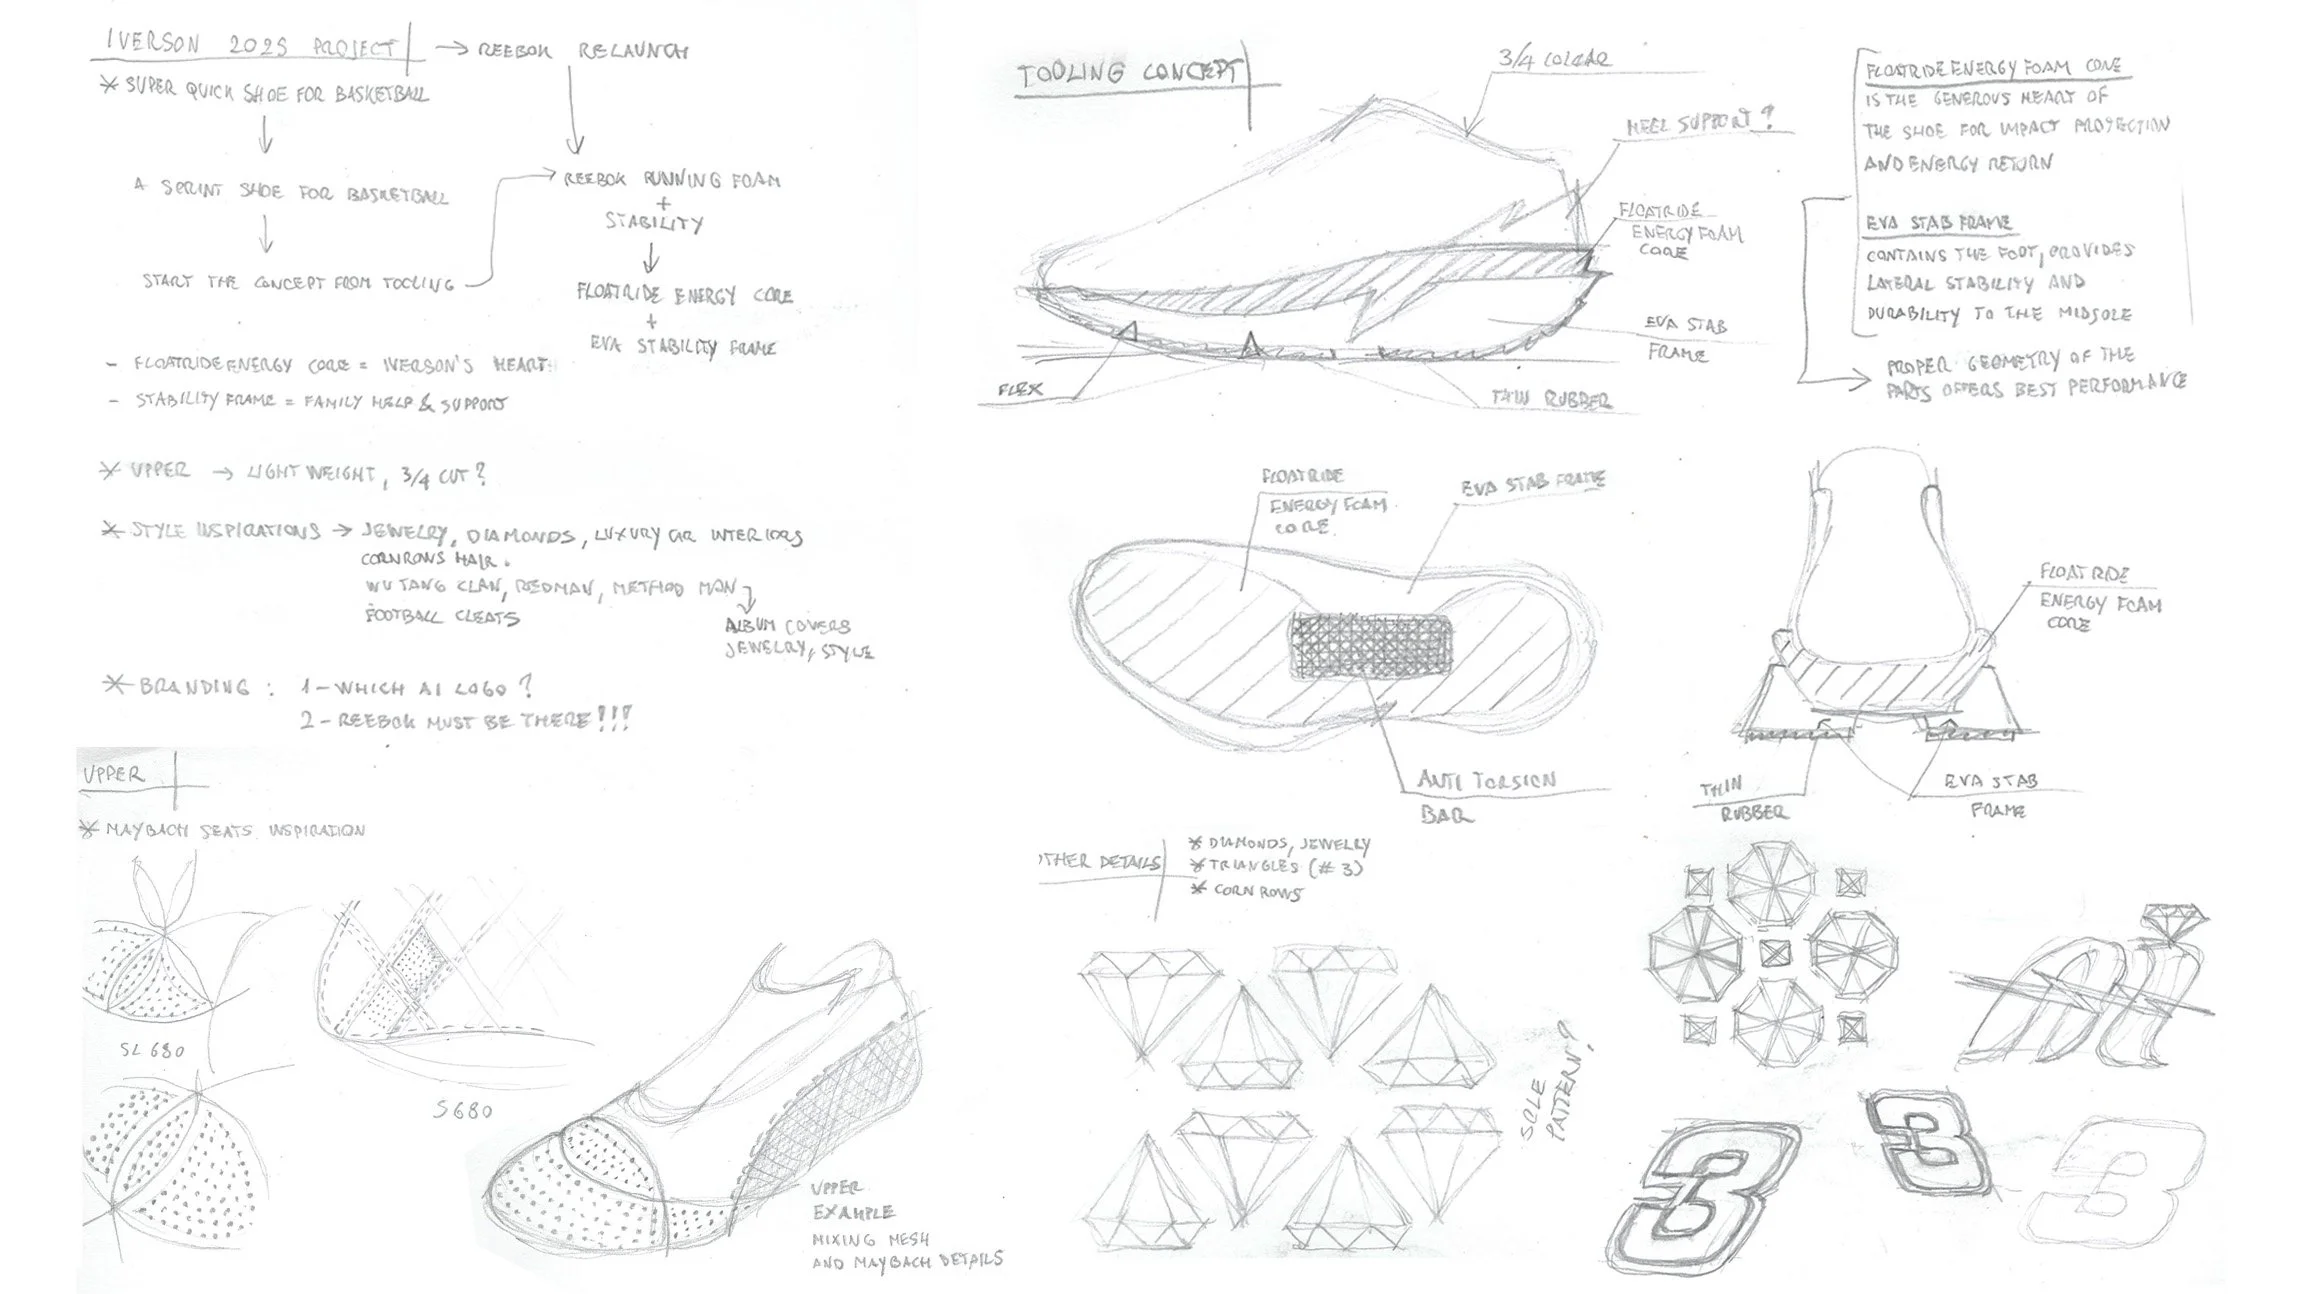 IVERSON 2025 PROJECT → REEBOK RELAUNCH
* SUPER QUICK SHOE FOR BASKETBALL
A SPRINT SHOE FOR BASKETBALL
START THE CONCEPT FROM TOOLING
REEBOK RUNNING FOAM
+
STABILITY
FLOATRIDE ENERGY CORE
+
EVA STABILITY FRAME
- FLOATRIDE ENERGY CORE = IVERSON'S HEART
- STABILITY FRAME = FAMILY HELP & SUPPORT
* UPPER → LIGHT WEIGHT, 3/4 CUT?
* STYLE INSPIRATIONS → JEWELRY, DIAMONDS, LUXURY CAR INTERIORS
CORNROWS HAIR.
WU TANG CLAN, REDMAN, METHOD MAN
FOOTBALL CLEATS
ALBUM COVERS
JEWELRY, STYLE
* BRANDING : 1 - WHICH AI LOGO?
2 - REEBOK MUST BE THERE!!!
UPPER
* MAYBACH SEATS INSPIRATION
SL 680
S680
UPPER
EXAMPLE
MIXING MESH
AND MAYBACH DETAILS
TOOLING CONCEPT
3/4 COLLAR
HEEL SUPPORT?
FLOATRIDE
ENERGY FOAM
CORE
EVA STAB
FRAME
FLEX
THIN RUBBER
FLOATRIDE ENERGY FOAM CORE
IS THE GENEROUS HEART OF
THE SHOE FOR IMPACT PROTECTION
AND ENERGY RETURN
EVA STAB FRAME
CONTAINS THE FOOT, PROVIDES
LATERAL STABILITY AND
DURABILITY TO THE MIDSOLE
PROPER GEOMETRY OF THE
PARTS OFFERS BEST PERFORMANCE
FLOATRIDE
ENERGY FOAM
CORE
EVA STAB FRAME
ANTI TORSION
BAR
FLOATRIDE
ENERGY FOAM
CORE
THIN
RUBBER
EVA STAB
FRAME
OTHER DETAILS
* DIAMONDS, JEWELLY
* TRIANGLES (# 3)
* CORN ROWS
SOLE
PATTERN?
3
3
3